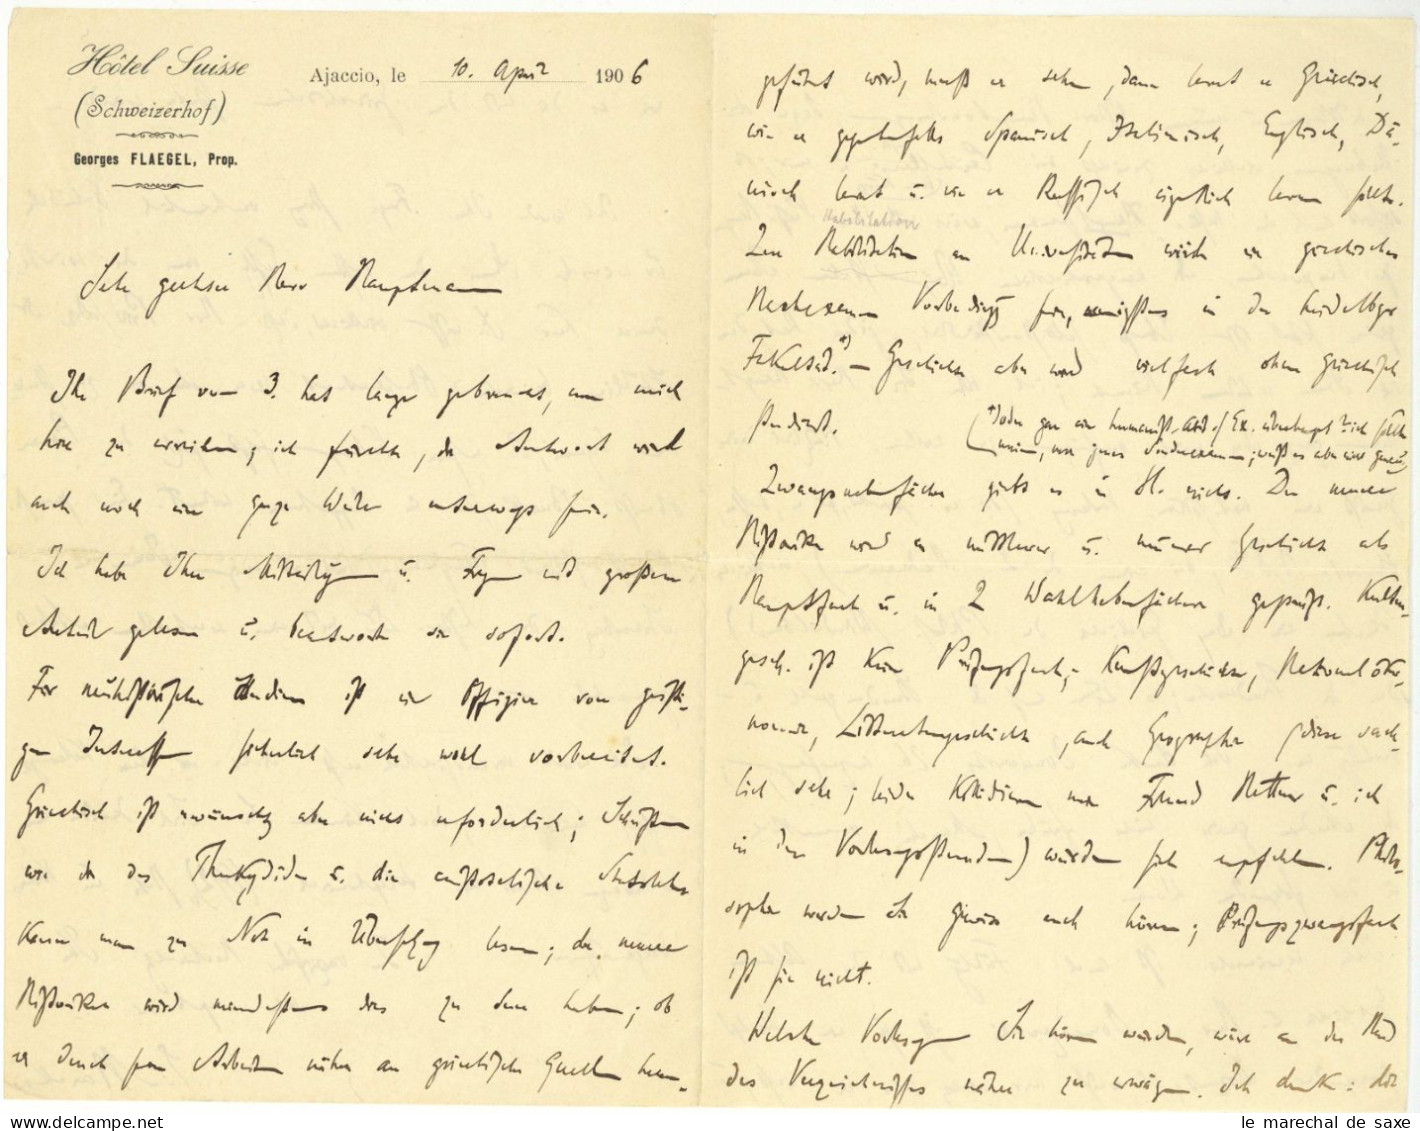 Hôtel Suisse
(Schweizerhof)
Georges FLAEGEL, Prop.
Ajaccio, le 10. April 1906
Sehr geehrter Herr Hauptmann
Ihr Brief vom 3. hat lange gebraucht, um mich
hier zu erreichen; ich fürchte, die Antwort wird
auch noch eine ganze Weile unterwegs sein.
Ich habe Ihre Mitteilungen u. Fragen mit großem
Anteil gelesen u. beantworte sie sofort.
Für neuhistorische Studien ist ein Offizier von geisti-
gen Interessen sicherlich sehr wohl vorbereitet.
Griechisch ist erwünscht, aber nicht erforderlich; Schriften
wie die des Thukydides u. die aristotelische
kann man zur Not in Übersetzung lesen; der neuere
Historiker wird mindestens das zu tun haben; ob
er durch seine Arbeiten näher an griechische Quellen heran-
geführt wird, muß er sehn, dann lernt er Griechisch,
wie er gegebenenfalls Spanisch, Italienisch, Englisch, Dä-
nisch lernt u. wie er Russisch eigentlich lernen sollte.
Habilitation
Zur Habilitation an Universitäten würde ein griechisches
Vorbedingung sein, wenigstens in der Heidelbger
Fakultät.*) – Geschichte aber wird vielfach ohne Griechisch
studiert.
(*) oder gar ein humanist. Abit. Ex. überhaupt? ich sollte
meinen, nur jenes; weiß es aber nicht genau)
Zwangsnebenfächer giebt es in H. nicht. Der neuere
Historiker wird in mittlerer u. neuerer Geschichte als
Hauptfach u. in 2 Wahlnebenfächern geprüft. Kultur-
gesch. ist kein Prüfungsfach; Kunstgeschichte, Nationalöko-
nomie, Litteraturgeschichte, auch Geographie (diese sach-
lich sehr; beide Freund Hettner u. ich
in den Vorlesungsstunden) würden sich empfehlen. Philo-
sophie werden Sie gewiss auch hören; Prüfungszwangsfach
ist sie nicht.
Welche Vorlesungen Sie hören würden, wäre an der Hand
des Verzeichnisses näher zu erwägen. Ich denke: die
le marechal de saxe